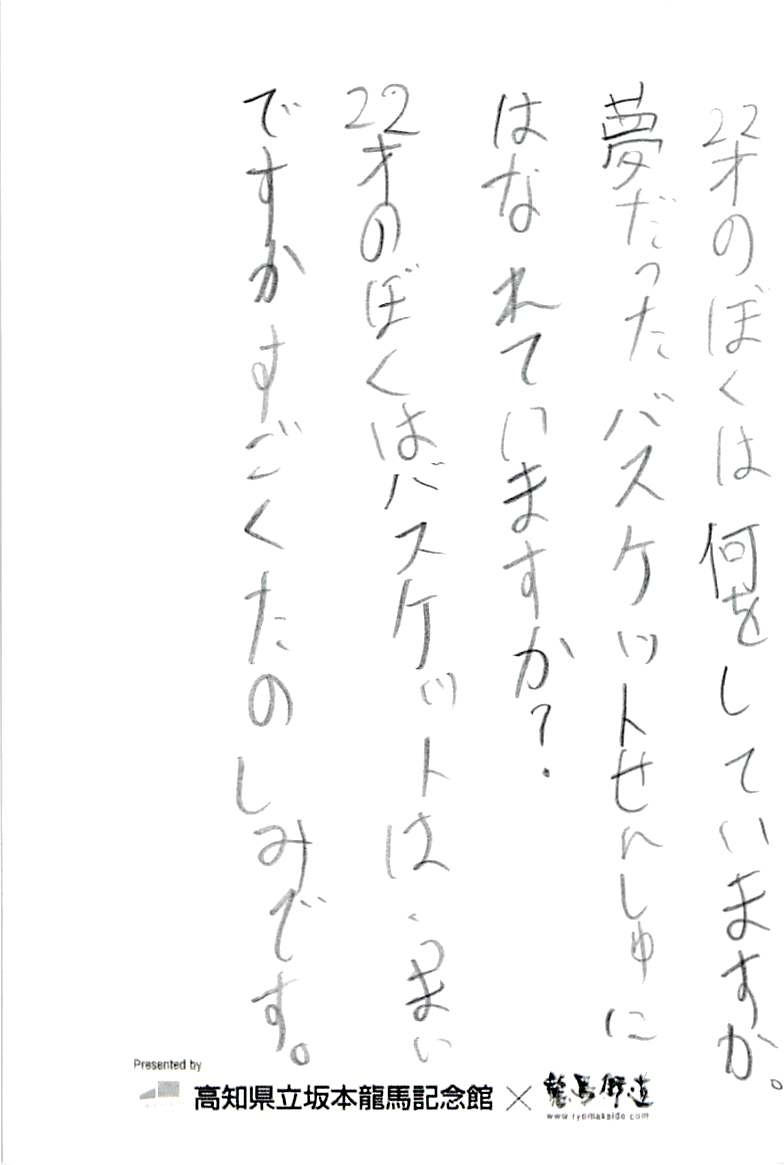 22才のぼくは何をしていますか。
夢だったバスケットせんしゅに
はなれていますか?
22才のぼくはバスケットは、うまい
ですかすごくたのしみです。
Presented by
高知県立坂本龍馬記念館×龍馬街道
www.ryomakaido.com